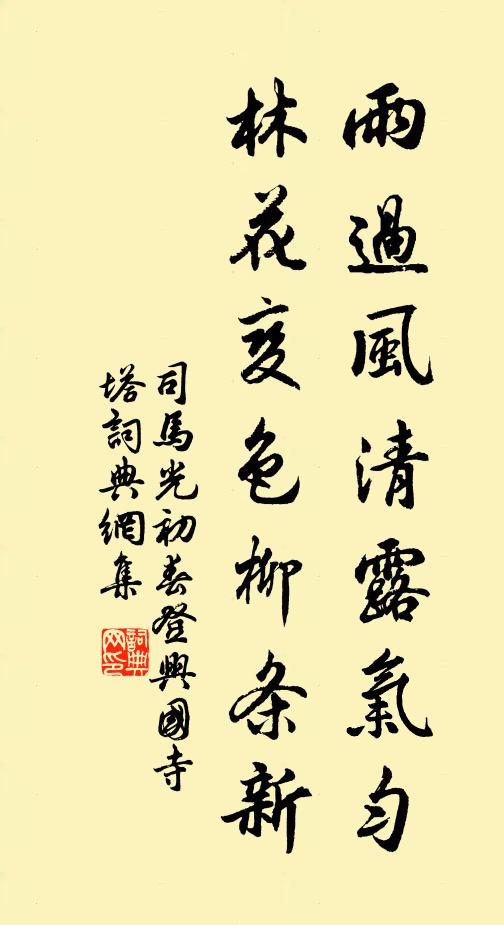 雨過風清露氣勻
林花变色柳条新
司馬光初春登興國寺
塔詞典網集
詞典
网印